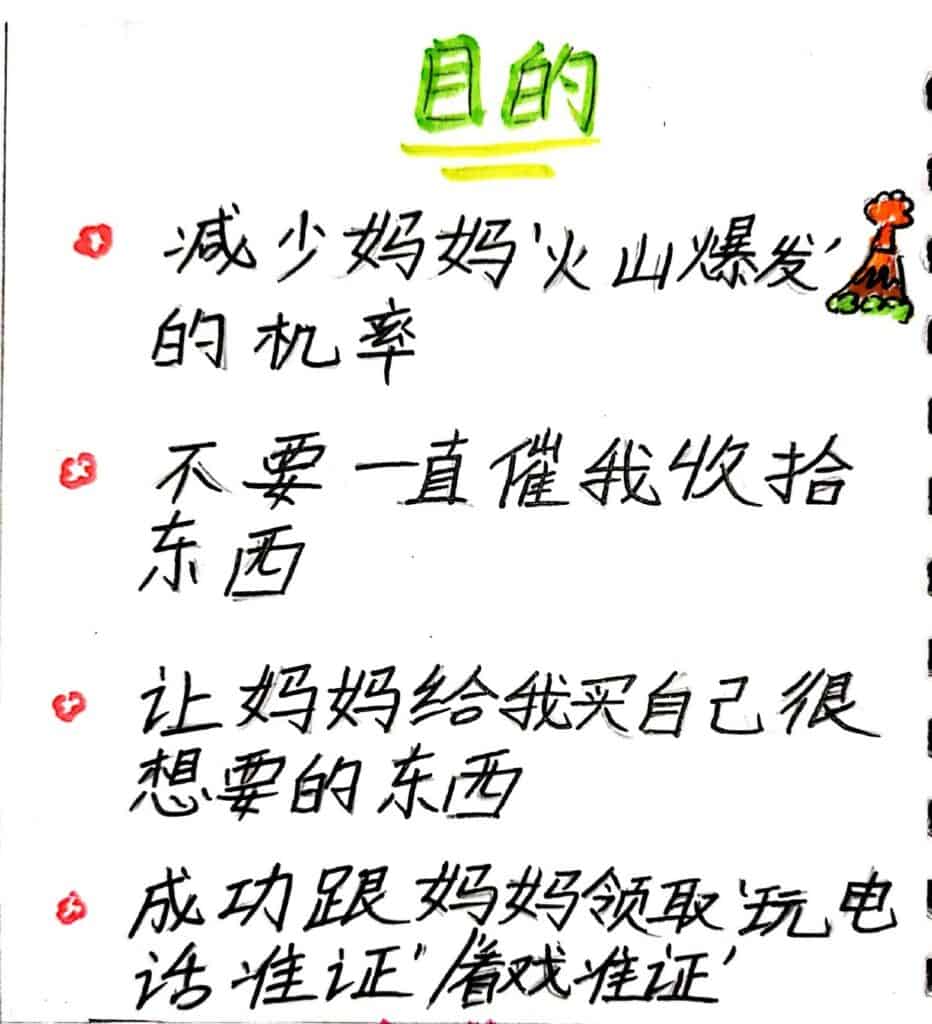 目的
减少妈妈'火山爆发'
的机率
不要一直催我收拾
东西
让妈妈给我买自己很
想要的东西
成功跟妈妈领取'玩电
话准证''看戏准证'